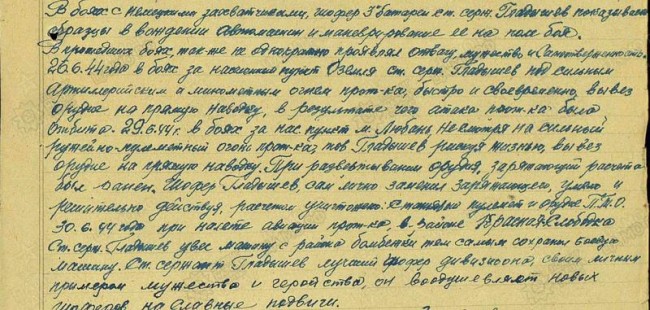 В боях с немецкими захватчиками, шофер 3 батареи ст. серж. Гладышев показывает
образцы в вождении автомашин и маневрирование ее на поле боя.
В прошедших боях так же не однократно проявлял отвагу, мужество и самоотверженность.
26.6.44 года в боях за населенный пункт Оземля ст. серж. Гладышев под сильным
артиллерийским и минометным огнем прот-ка, быстро и своевременно вывез
орудие на прямую наводку, в результате чего атака прот-ка была
отбита. 29.6.44 г. в боях за нас. пункт м. Любань, не смотря на сильный
ружейно-пулеметный огонь прот-ка, тов Гладышев рискуя жизнью, вывез
орудие на прямую наводку. При развертывании орудия, заряжающий расчета
был ранен. Шофер Гладышев, сам лично заменил заряжающего, умело и
решительно действуя, расчетом уничтожил: станковый пулемет и орудие П.Т.О.
30.6.44 года при налете авиации прот-ка, в районе Красная-Слободка
Ст. серж. Гладышев увел машину с района бомбежки тем самым сохранил боевую
машину. Ст. сержант Гладышев лучший шофер дивизиона, своим личным
примером мужества и геройства, он воодушевляет новых
шоферов на славные подвиги.